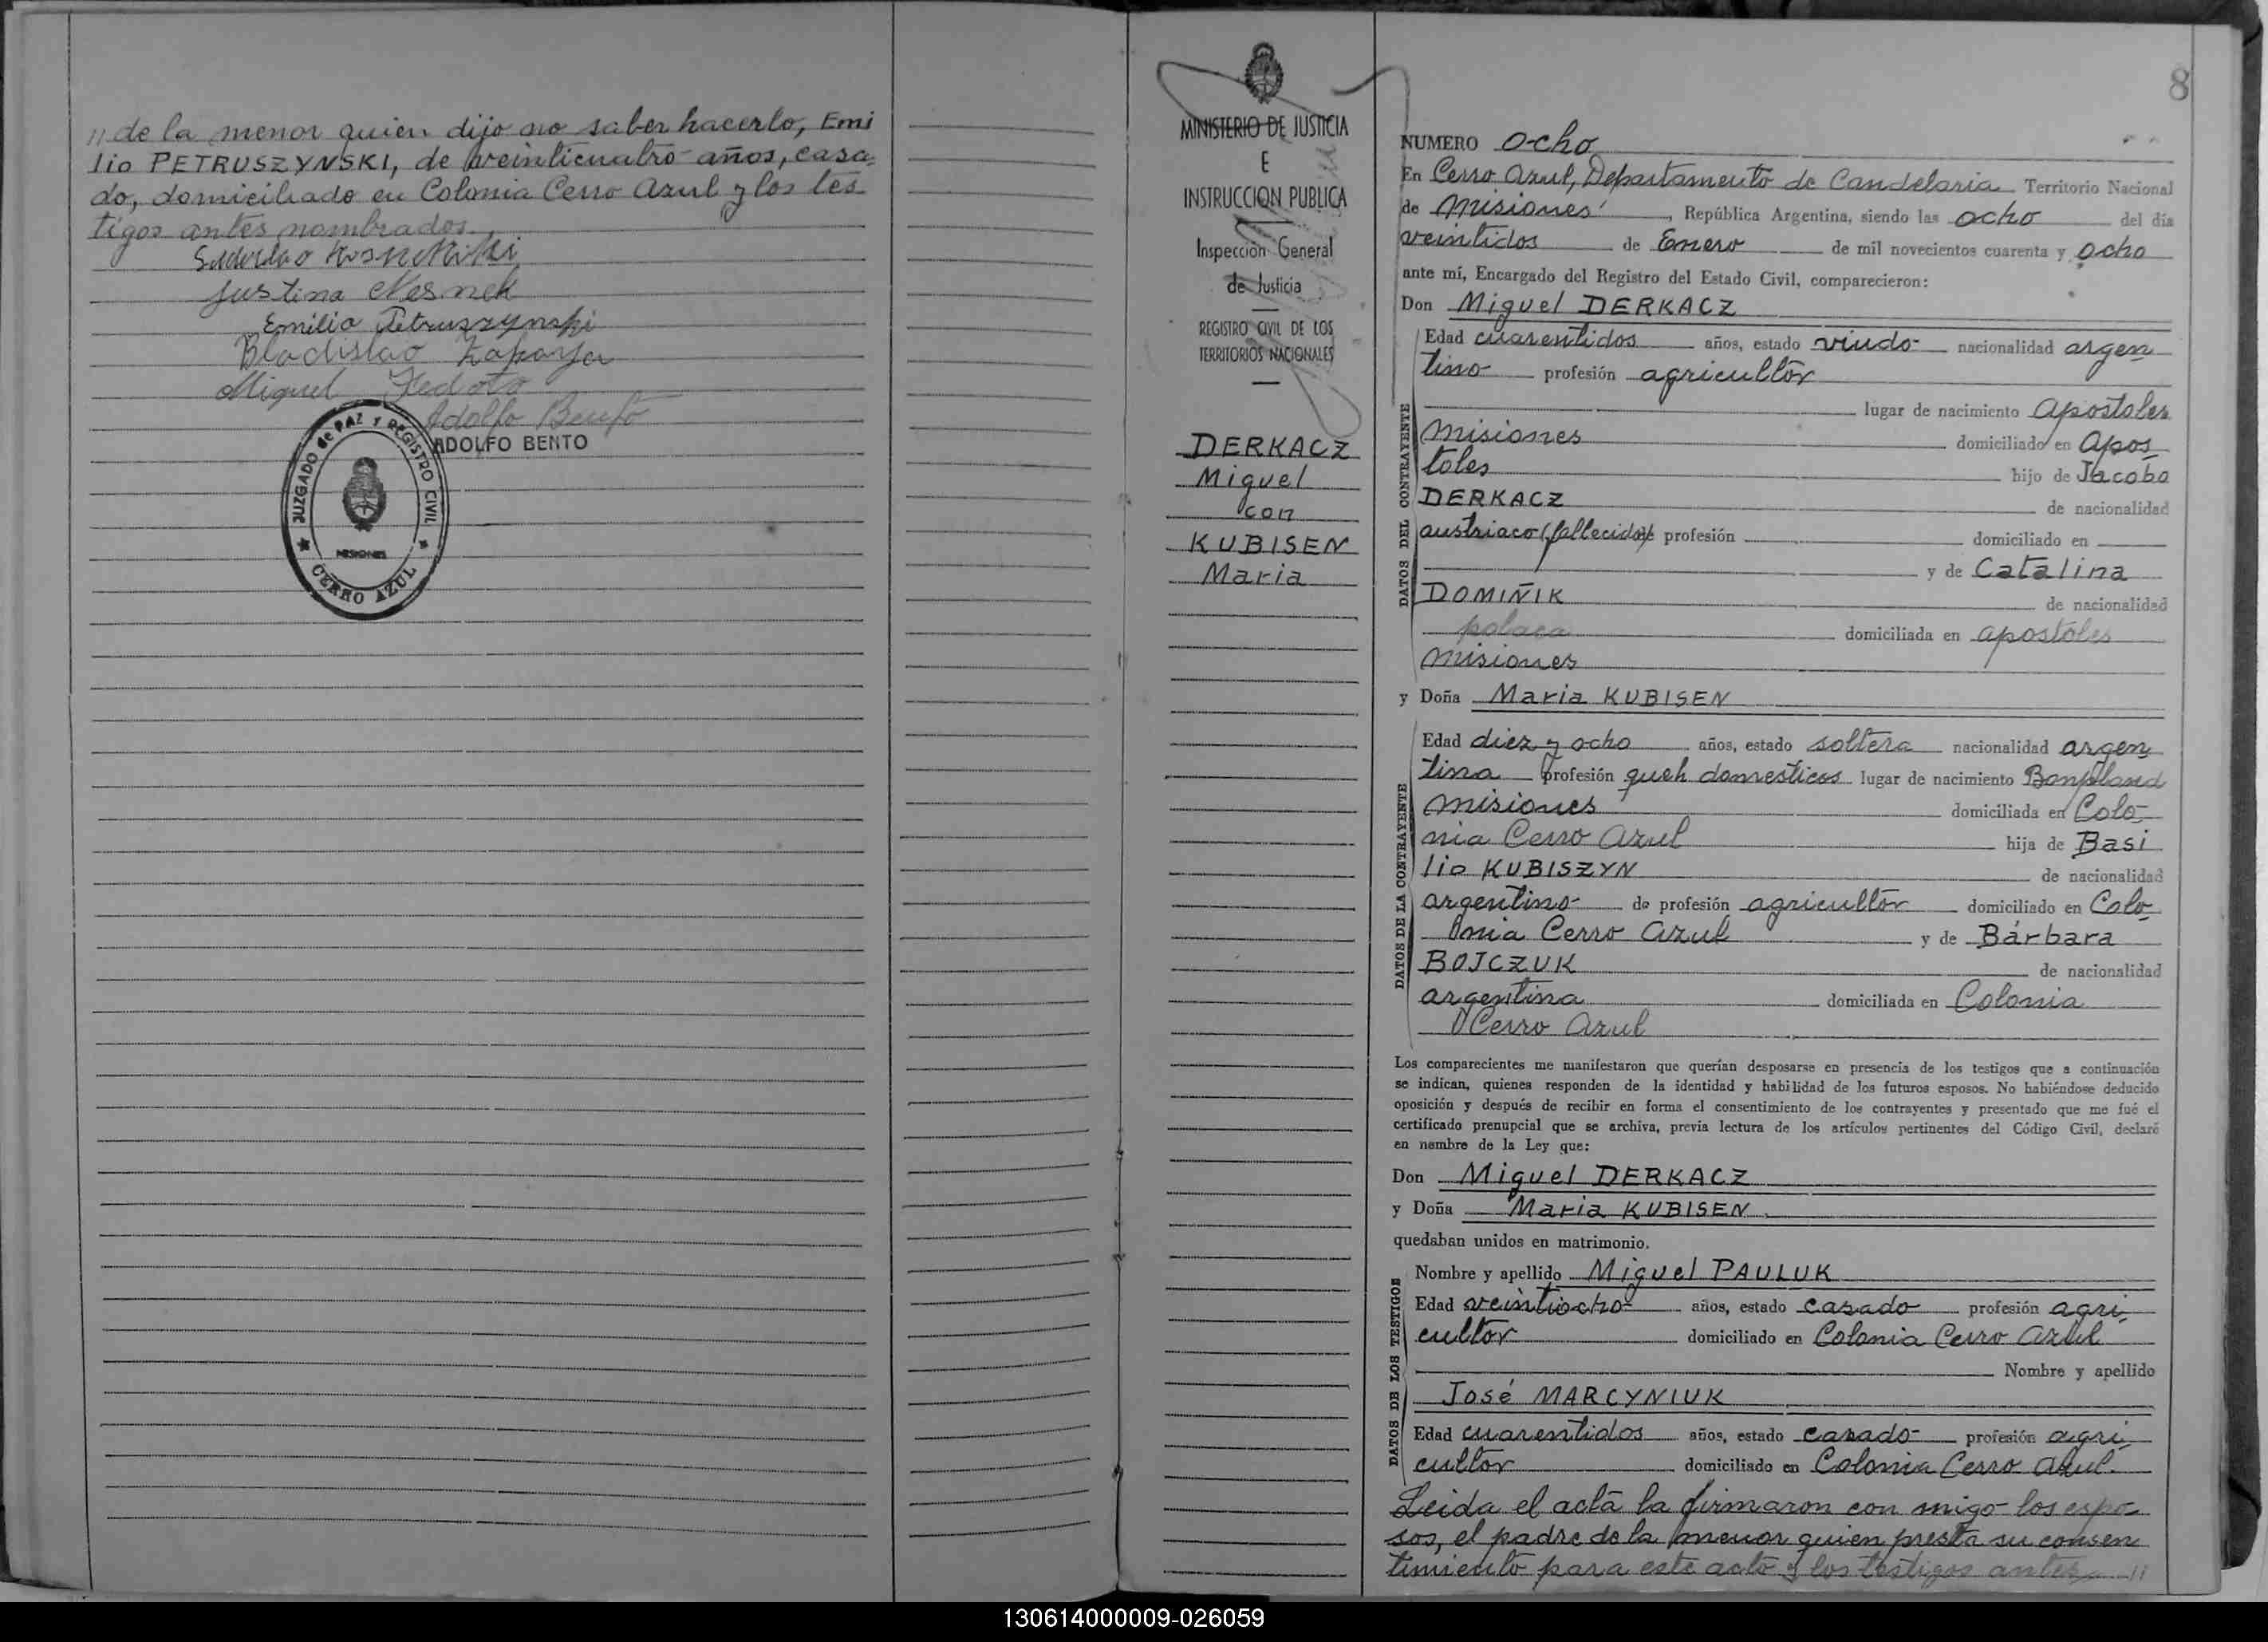 // de la menor quien dijo no saber hacerlo, Emi
lio PETRUSZYNSKI, de veinticuatro años, casa=
do, domiciliado en Colonia Cerro Azul y los tes
tigos antes nombrados.
Justina Nesnek
Emilio Petruszynski
Bladislao Zaparja
Miguel Fedoto
Adolfo Bento
ADOLFO BENTO
JUZGADO de PAZ Y REGISTRO CIVIL
MISIONES
CERRO AZUL
MINISTERIO DE JUSTICIA
E
INSTRUCCION PUBLICA
Inspección General
de Justicia
REGISTRO CIVIL DE LOS
TERRITORIOS NACIONALES
DERKACZ
Miguel
con
KUBISEN
Maria
8
NUMERO ocho
En Cerro Azul, Departamento de Candelaria Territorio Nacional
de Misiones, República Argentina, siendo las ocho del día
veintidos de Enero de mil novecientos cuarenta y ocho
ante mí, Encargado del Registro del Estado Civil, comparecieron:
Don Miguel DERKACZ
DATOS DEL CONTRAYENTE
Edad cuarentidos años, estado viudo nacionalidad argen
tino profesión agricultor
lugar de nacimiento Apostoles
Misiones domiciliado en Apos
toles hijo de Jacobo
DERKACZ de nacionalidad
austriaco (fallecido) de profesión domiciliado en
y de Catalina
DOMIÑIK de nacionalidad
polaca domiciliada en Apostoles
Misiones
y Doña Maria KUBISEN
DATOS DE LA CONTRAYENTE
Edad diez y ocho años, estado soltera nacionalidad argen
tina profesión queh domesticos lugar de nacimiento Bonpland
Misiones domiciliada en Colo
nia Cerro Azul hija de Basi
lio KUBISZYN de nacionalidad
argentino de profesión agricultor domiciliado en Colo
nia Cerro Azul y de Bárbara
BOJCZUK de nacionalidad
argentina domiciliada en Colonia
Cerro Azul
Los comparecientes me manifestaron que querían desposarse en presencia de los testigos que a continuación
se indican, quienes responden de la identidad y habilidad de los futuros esposos. No habiéndose deducido
oposición y después de recibir en forma el consentimiento de los contrayentes y presentado que me fué el
certificado prenupcial que se archiva, previa lectura de los artículos pertinentes del Código Civil, declaré
en nombre de la Ley que:
Don Miguel DERKACZ
y Doña Maria KUBISEN
quedaban unidos en matrimonio.
DATOS DE LOS TESTIGOS
Nombre y apellido Miguel PAULUK
Edad veintiocho años, estado casado profesión agri
cultor domiciliado en Colonia Cerro Azul
Nombre y apellido
José MARCYNIUK
Edad cuarentidos años, estado casado profesión agri
cultor domiciliado en Colonia Cerro Azul.
Leida el acta la firmaron con migo los espo
sos, el padre de la menor quien presta su consen
timiento para este acto y los testigos antes //
130614000009-026059